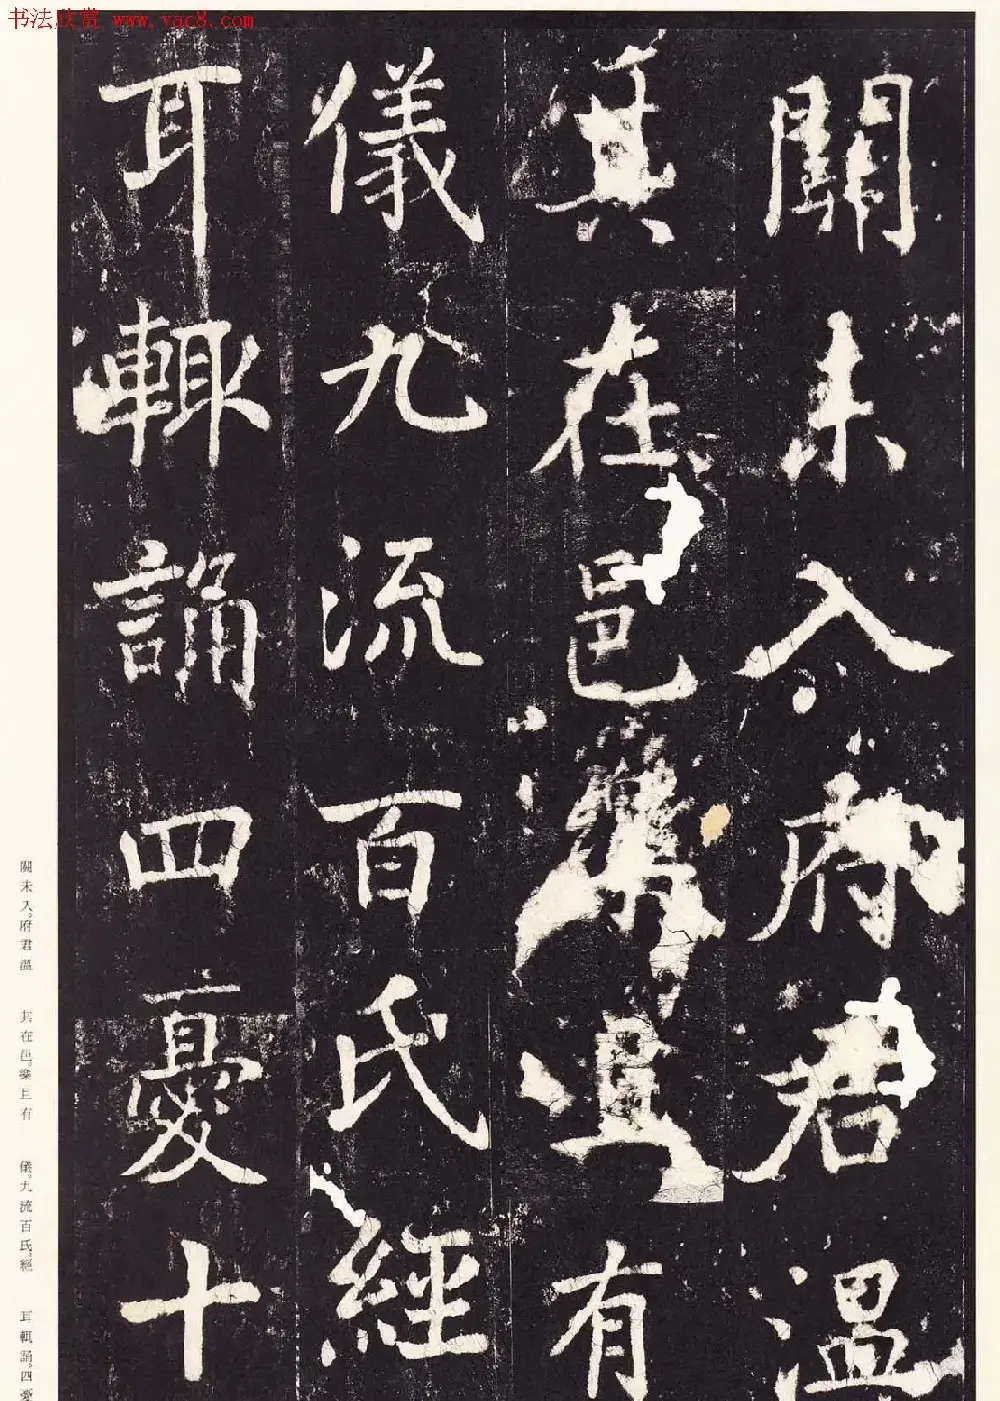 书法欣赏 www.yac8.com
關未入府君溫
其在邑
且有
儀九流百氏經
耳輒誦四憂十
關未入。府君溫
其在邑。梁且有
儀。九流百氏。經
耳輒誦。四憂